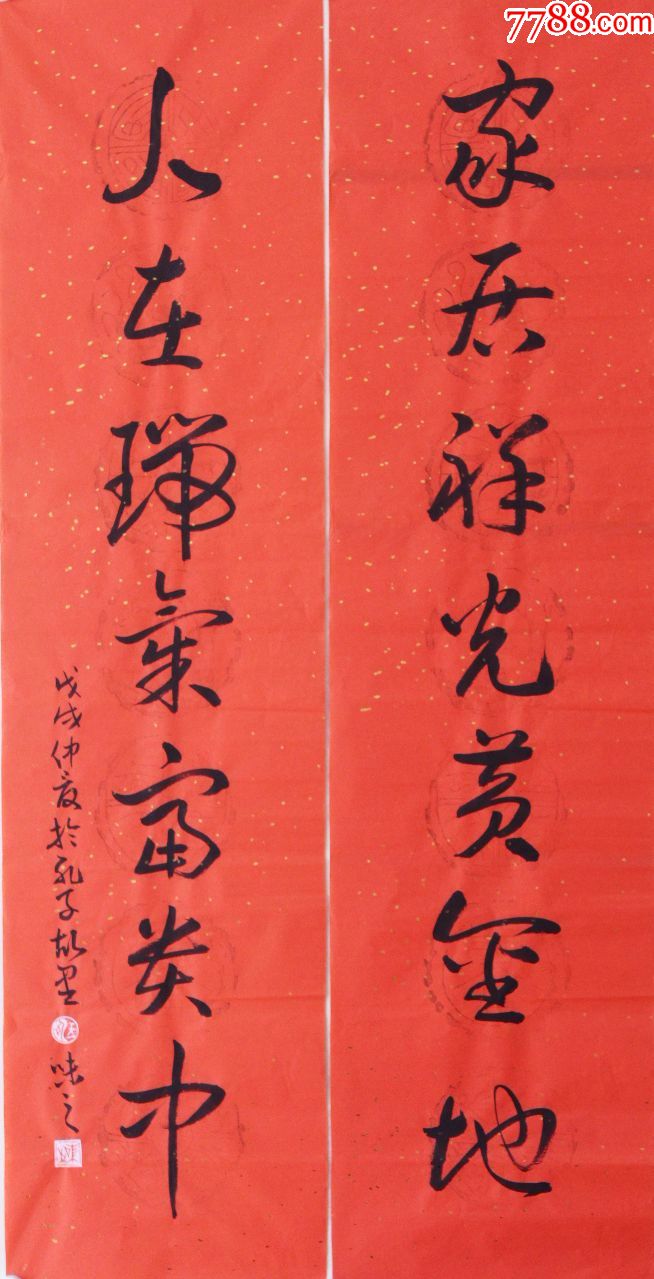 7788.com
家居祥光黄金地
人在瑞氣富贵中
戊戌仲夏於孔子故里
味之